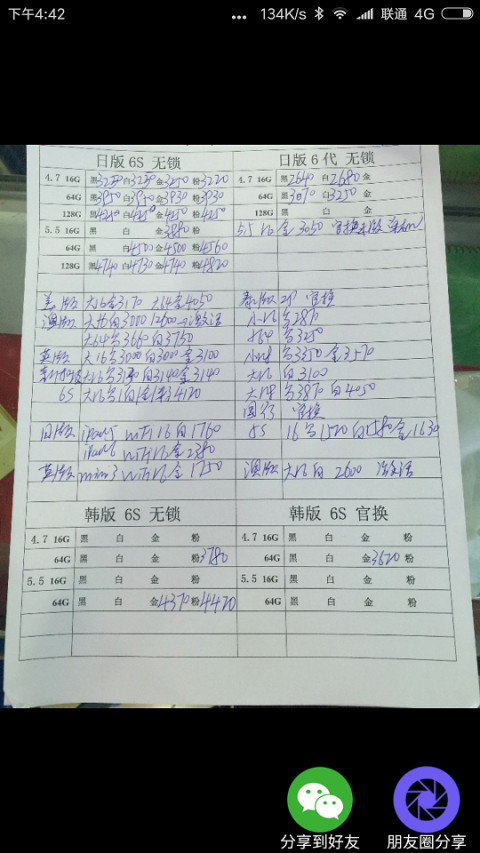 下午4:42 ... 134K/s 联通 4G
日版 6S 无锁
4.7 16G 黑3250 白3230 金3250 粉3220
64G 黑3950 白3950 金3930 粉3930
128G 黑4240 白4250 金4250 粉4250
5.5 16G 黑 白 金3880 粉
64G 黑 白4500 金4500 粉4560
128G 黑4740 白4730 金4740 粉4820
日版 6代 无锁
4.7 16G 黑2640 白2680 金
64G 黑3070 白3250 金
128G 黑 白 金
5.5 16 金 3050 官换
美版 大16金3170 大64金4050
澳版 大16白3000 12600 激活
大64黑3660白3750
英版 大16黑3000白3000金3100
大16黑3140白3140金3140
6S 4120
日版 ipad5 wifi 16 白1760
ipad6 wifi16金2380
英版 mini3 wifi16金1750
官换
小64黑3350金3570
大16白3100
大128黑3870白4050
国行 官换
5S 16黑1520白1580金1630
澳版 大16白 2600 激活
韩版 6S 无锁
4.7 16G 黑 白 金 粉
64G 黑 白 金 粉3780
5.5 16G 黑 白 金 粉
64G 黑 白 金4370 粉4420
韩版 6S 官换
4.7 16G 黑 白 金 粉
64G 黑 白 金3620 粉
5.5 16G 黑 白 金 粉
64G 黑 白 金 粉
分享到好友 朋友圈分享